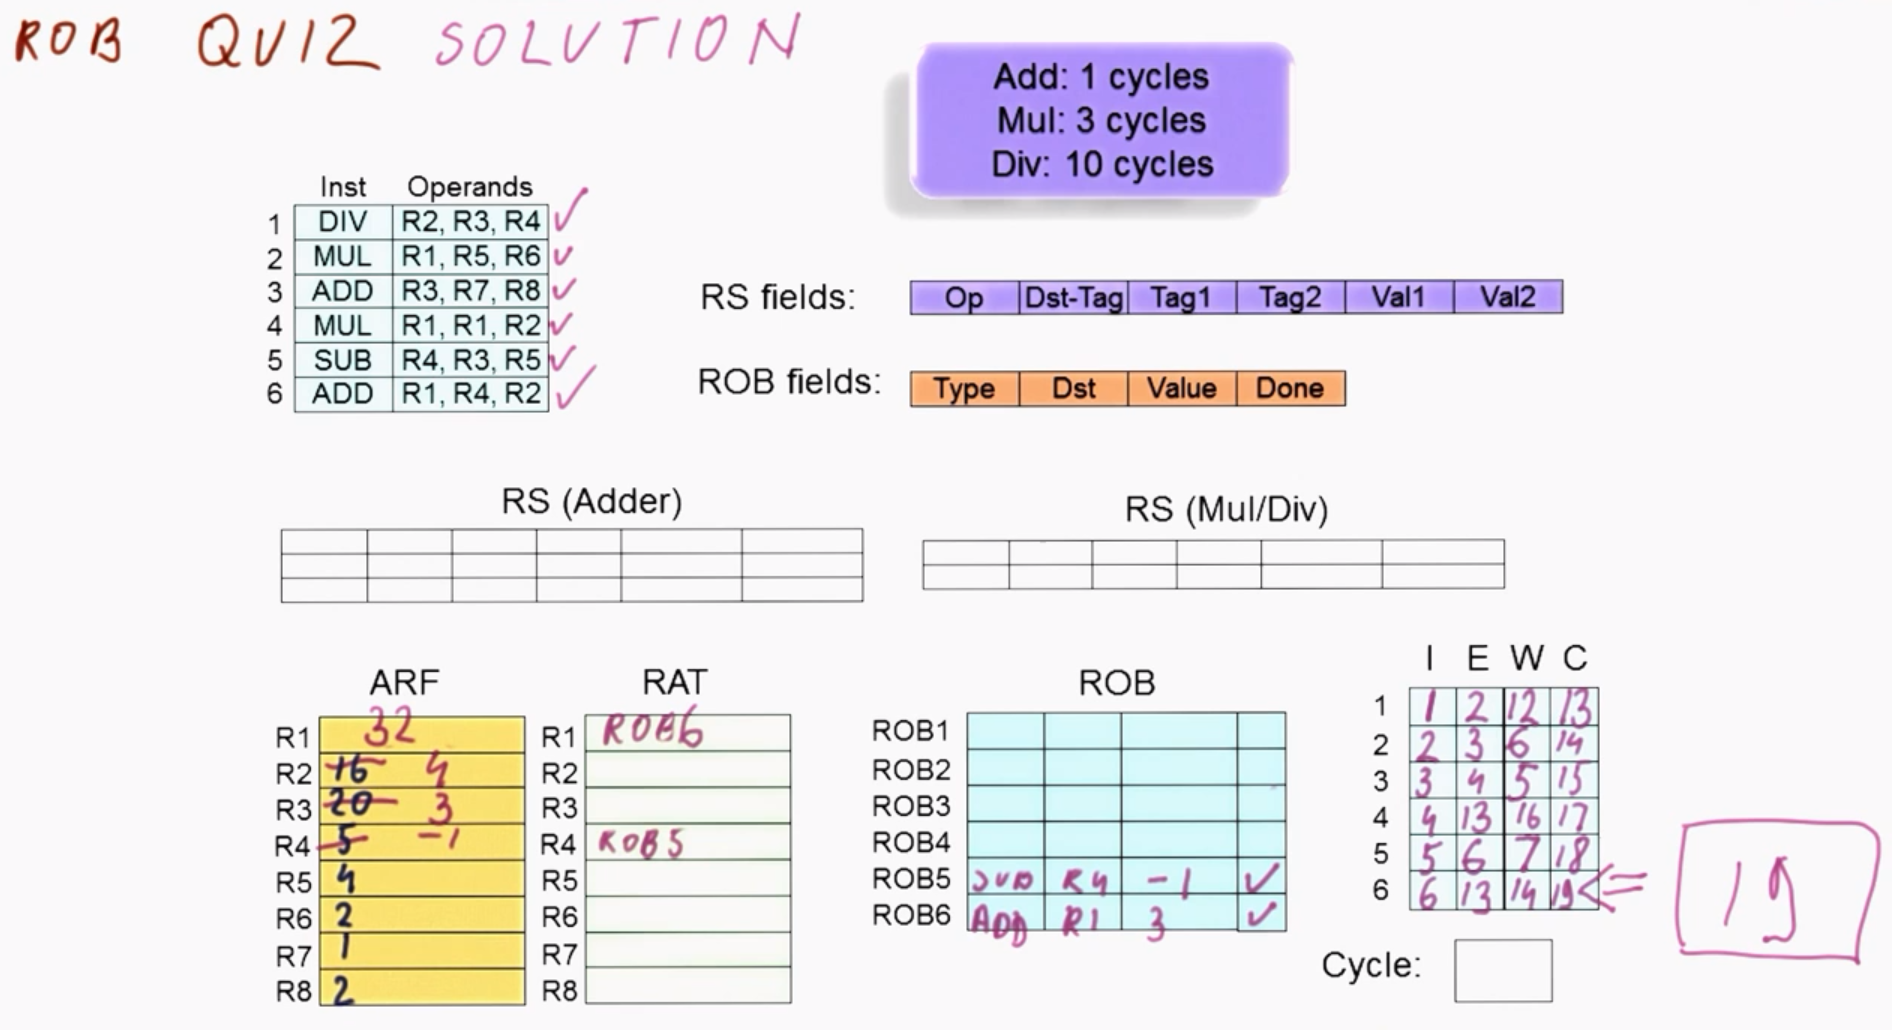 ROB QUIZ SOLUTION
Add: 1 cycles
Mul: 3 cycles
Div: 10 cycles
Inst Operands
1 DIV R2, R3, R4 ✓
2 MUL R1, R5, R6 ✓
3 ADD R3, R7, R8 ✓
4 MUL R1, R1, R2 ✓
5 SUB R4, R3, R5 ✓
6 ADD R1, R4, R2 ✓
RS fields: Op Dst-Tag Tag1 Tag2 Val1 Val2
ROB fields: Type Dst Value Done
RS (Adder)
RS (Mul/Div)
ARF
R1 32
R2 16 4
R3 20 3
R4 5 -1
R5 4
R6 2
R7 1
R8 2
RAT
R1 ROB6
R2
R3
R4 ROB5
R5
R6
R7
R8
ROB
ROB1
ROB2
ROB3
ROB4
ROB5 SUB R4 -1 ✓
ROB6 ADD R1 3 ✓
I E W C
1 1 2 12 13
2 2 3 6 14
3 3 4 5 15
4 4 13 16 17
5 5 6 7 18
6 6 13 14 19
19
Cycle: